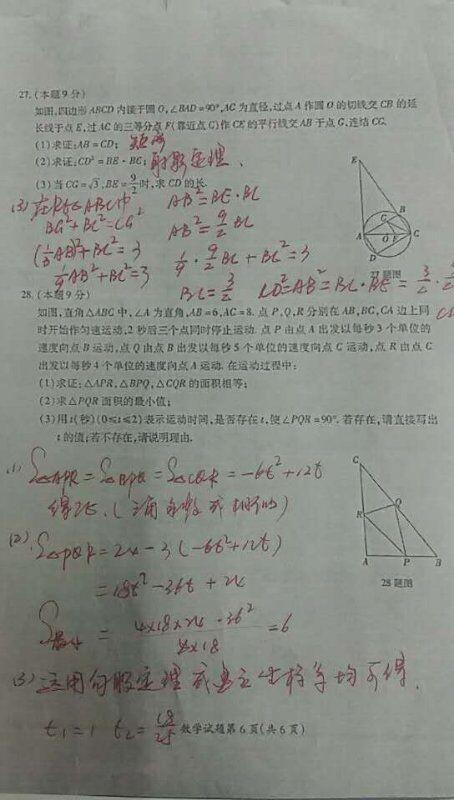 27.(本题9分)
如图,四边形ABCD内接于圆O,∠BAD=90°,AC为直径,过点A作圆O的切线交CB的延
长线于点E,过AC的三等分点F(靠近点C)作CE的平行线交AB于点G,连结CG.
(1)求证:AB=CD; 矩形
(2)求证:CD²=BE·BC; 射影定理.
(3)当CG=√3,BE=9/2时,求CD的长.
(3) 在Rt△ABC中, AB²=BE·BC
BG²+BC²=CG² AB²=9/2BC
(1/3AB)²+BC²=3 1/9·9/2BC+BC²=3
1/9AB²+BC²=3 BC=3/2 CD²=AB²=BC·BE=3/2·
E
B
G
A
O
F
C
D
27题图
28.(本题9分)
如图,直角△ABC中,∠A为直角,AB=6,AC=8.点P,Q,R分别在AB,BC,CA边上同
时开始作匀速运动,2秒后三个点同时停止运动.点P由点A出发以每秒3个单位的
速度向点B运动,点Q由点B出发以每秒5个单位的速度向点C运动,点R由点C
出发以每秒4个单位的速度向点A运动.在运动过程中:
(1)求证:△APR,△BPQ,△CQR的面积相等;
(2)求△PQR面积的最小值;
(3)用t(秒)(0≤t≤2)表示运动时间,是否存在t,使∠PQR=90°.若存在,请直接写出
t的值;若不存在,请说明理由.
(1) S△APR=S△BPQ=S△CQR=-6t²+12t
得证.(三角函数或相似)
(2) S△PQR=24-3(-6t²+12t)
=18t²-36t+24
S最小=(4×18×24-36²)/(4×18)=6
(3)运用勾股定理或建立坐标等均可得.
t₁=1 t₂=18/25
C
Q
R
A
P
B
28题图
数学试题第6页(共6页)